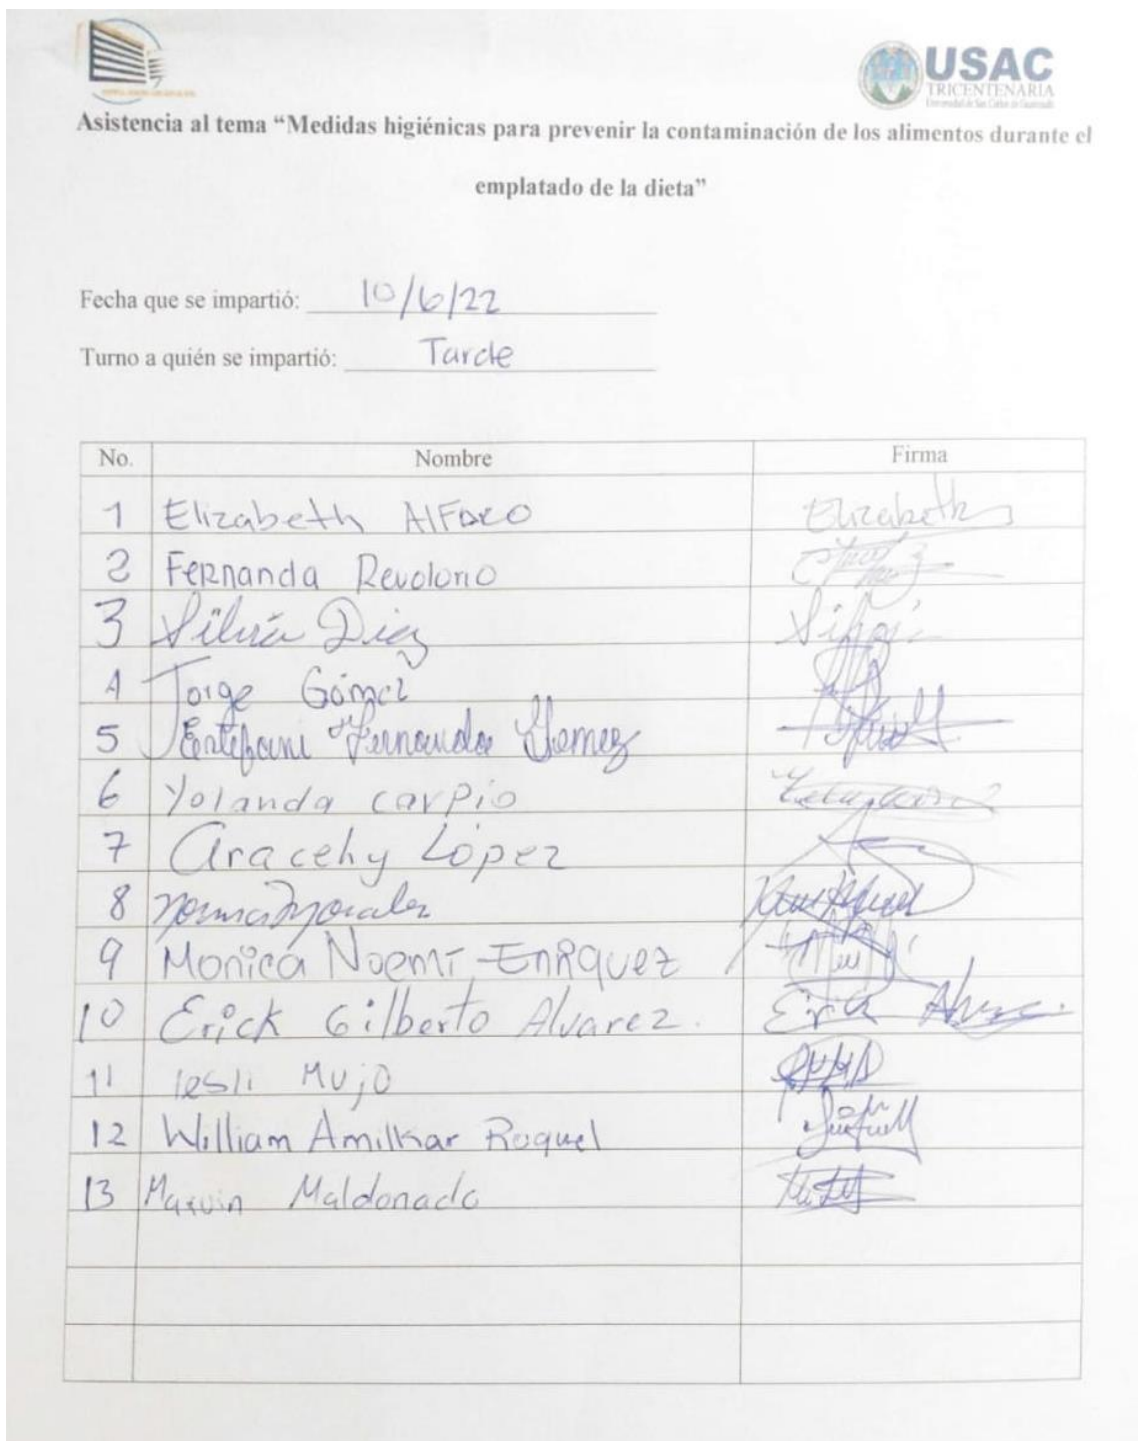 USAC
TRICENTENARIA
Universidad de San Carlos de Guatemala
Asistencia al tema “Medidas higiénicas para prevenir la contaminación de los alimentos durante el
emplatado de la dieta”
Fecha que se impartió: 10/6/22
Turno a quién se impartió: Tarde
No. Nombre Firma
1 Elizabeth Alfaro Elizabeth
2 Fernanda Revolorio
3 Silvia Diaz
4 Jorge Gómez
5 Estefani Fernanda Gomez
6 Yolanda carpio
7 Aracely López
8 Norma Morales
9 Monica Noemí Enriquez
10 Erick Gilberto Alvarez. Erick
11 lesli Mujo
12 William Amilkar Raquel
13 Marvin Maldonado